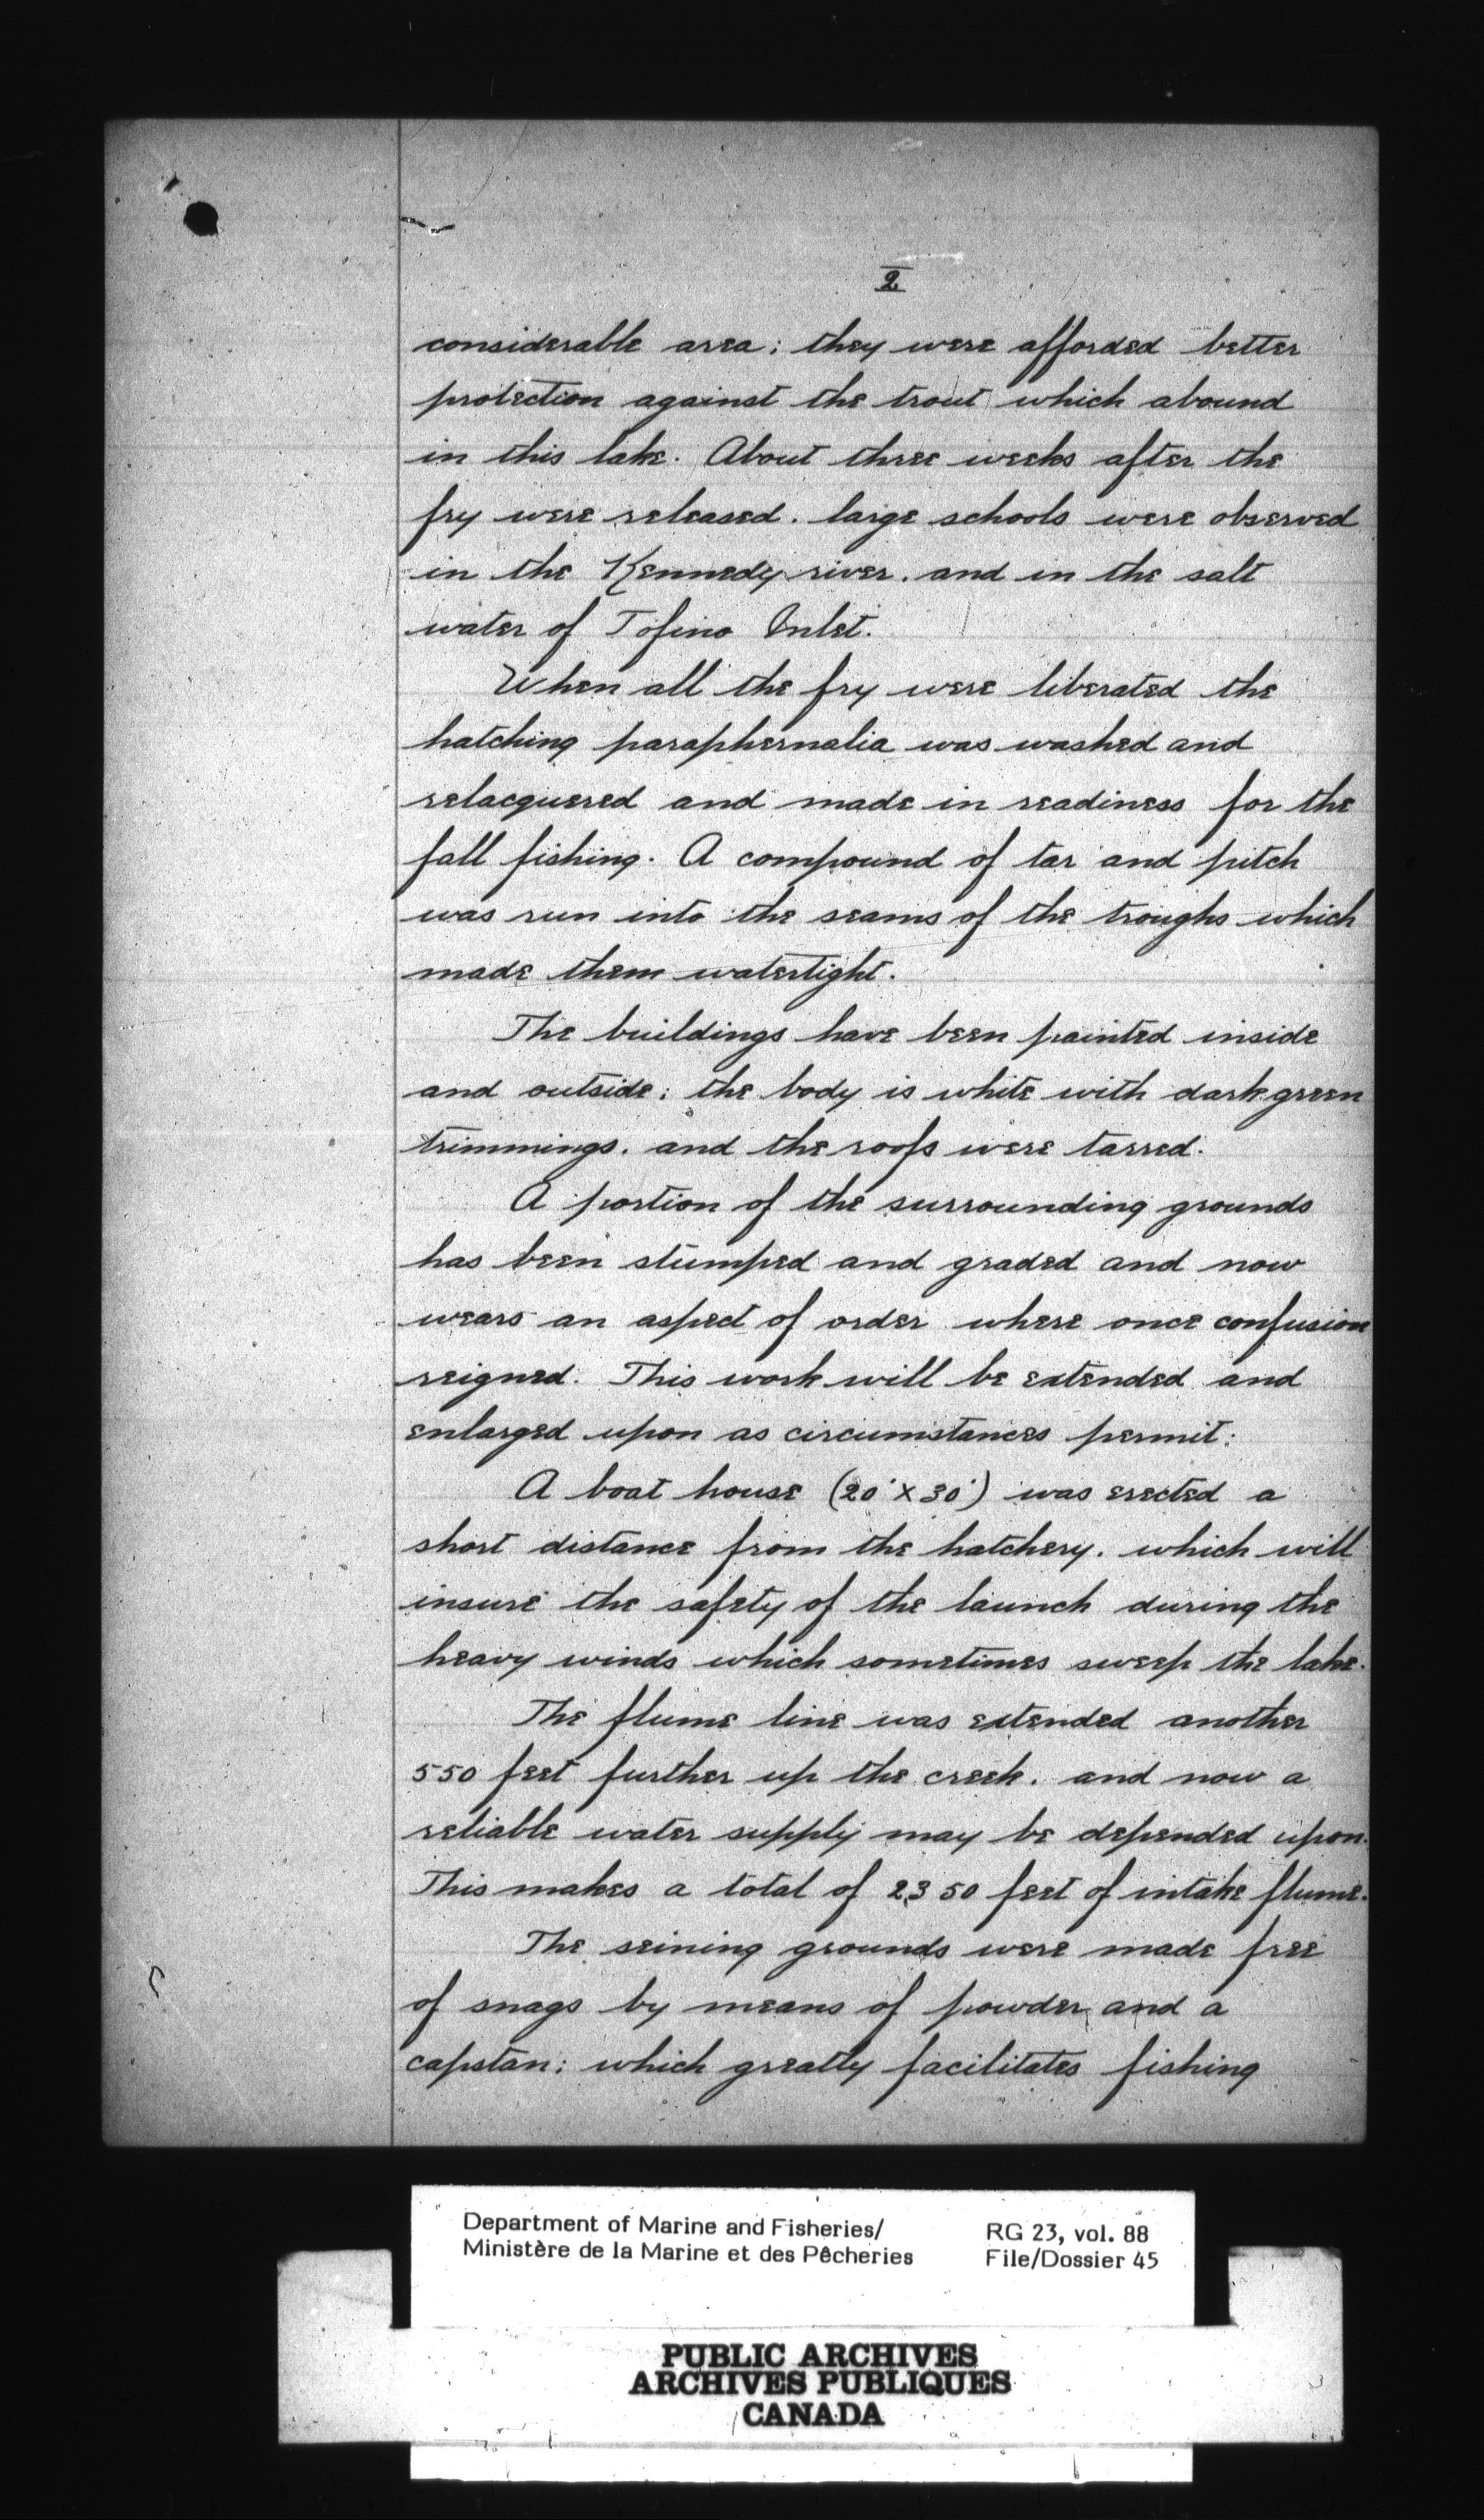 2
considerable area; they were afforded better
protection against the trout which abound
in this lake. About three weeks after the
fry were released. large schools were observed
in the Kennedy river. and in the salt
water of Tofino Inlet.
When all the fry were liberated the
hatching paraphernalia was washed and
relacquered and made in readiness for the
fall fishing. A compound of tar and pitch
was run into the seams of the troughs which
made them watertight.
The buildings have been painted inside
and outside; the body is white with dark green
trimmings. and the roofs were tarred.
A portion of the surrounding grounds
has been stumped and graded and now
wears an aspect of order where once confusion
reigned. This work will be extended and
enlarged upon as circumstances permit:
A boat house (20' x 30') was erected a
short distance from the hatchery. which will
insure the safety of the launch during the
heavy winds which sometimes sweep the lake.
The flume line was extended another
550 feet further up the creek. and now a
reliable water supply may be depended upon.
This makes a total of 2350 feet of intake flume.
The seining grounds were made free
of snags by means of powder and a
capstan; which greatly facilitates fishing
Department of Marine and Fisheries/ RG 23, vol. 88
Ministère de la Marine et des Pêcheries File/Dossier 45
PUBLIC ARCHIVES
ARCHIVES PUBLIQUES
CANADA